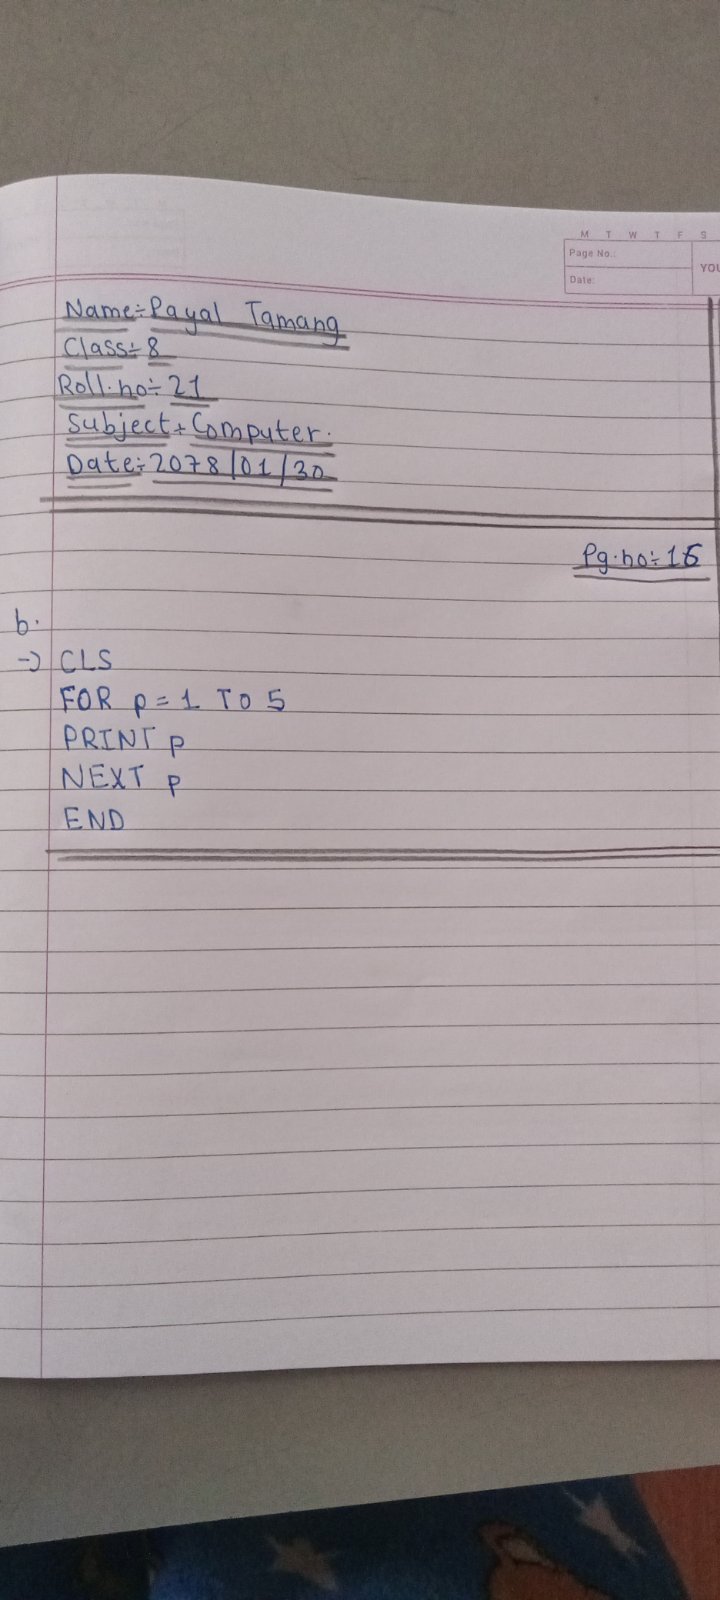 M T W T F S
Page No.:
YOU
Date:
Name:- Payal Tamang
Class:- 8
Roll.no:- 21
Subject:- Computer.
Date:- 2078/01/30
Pg.no:- 16
b.
→ CLS
FOR p = 1 TO 5
PRINT p
NEXT p
END